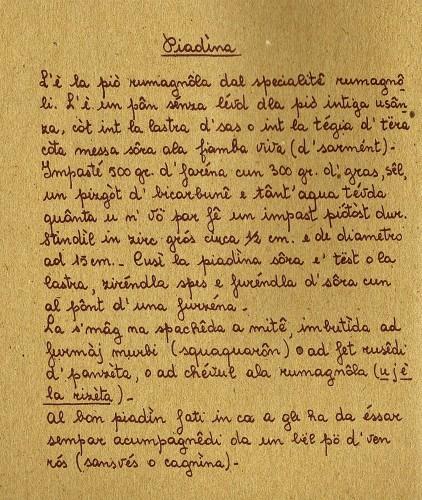 Piadìna
L'è la piò rumagnôla dal specialitê rumagnô
li. L'è un pân sénza lévd dla piò intiga usân
za, còt int la lastra d'sas o int la tégia d'tëra
còta messa sôra ala fiamba viva (d'sarmént)-
Impasté 500 gr. d'faréna cun 300 gr. d'gras, sêl,
un pizgòt d'bicarbunê e tânt'aqua tévda
quânta u n' vö par fê un impast piötòst dur.
Stindìl in zirc grós circa 1/2 cm. e de diametro
ad 15 cm. - Cusì la piadìna sôra e' tëst o la
lastra, ziréndla spes e furéndla d'sôra cun
al pônt d'una furzéna.
La s'mâg na spachêda a mitê, imbutìda ad
furmàj murbi (squaquarôn) o ad fet rusêdi
d'panzèta, o ad chévul ala rumagnôla (u j è
la rizèta)-
Al bon piadìn fati in ca a gli ha da éssar
sempar acumpagnêdi da un bël pö d'ven
rós (sansvés o cagnìna)-